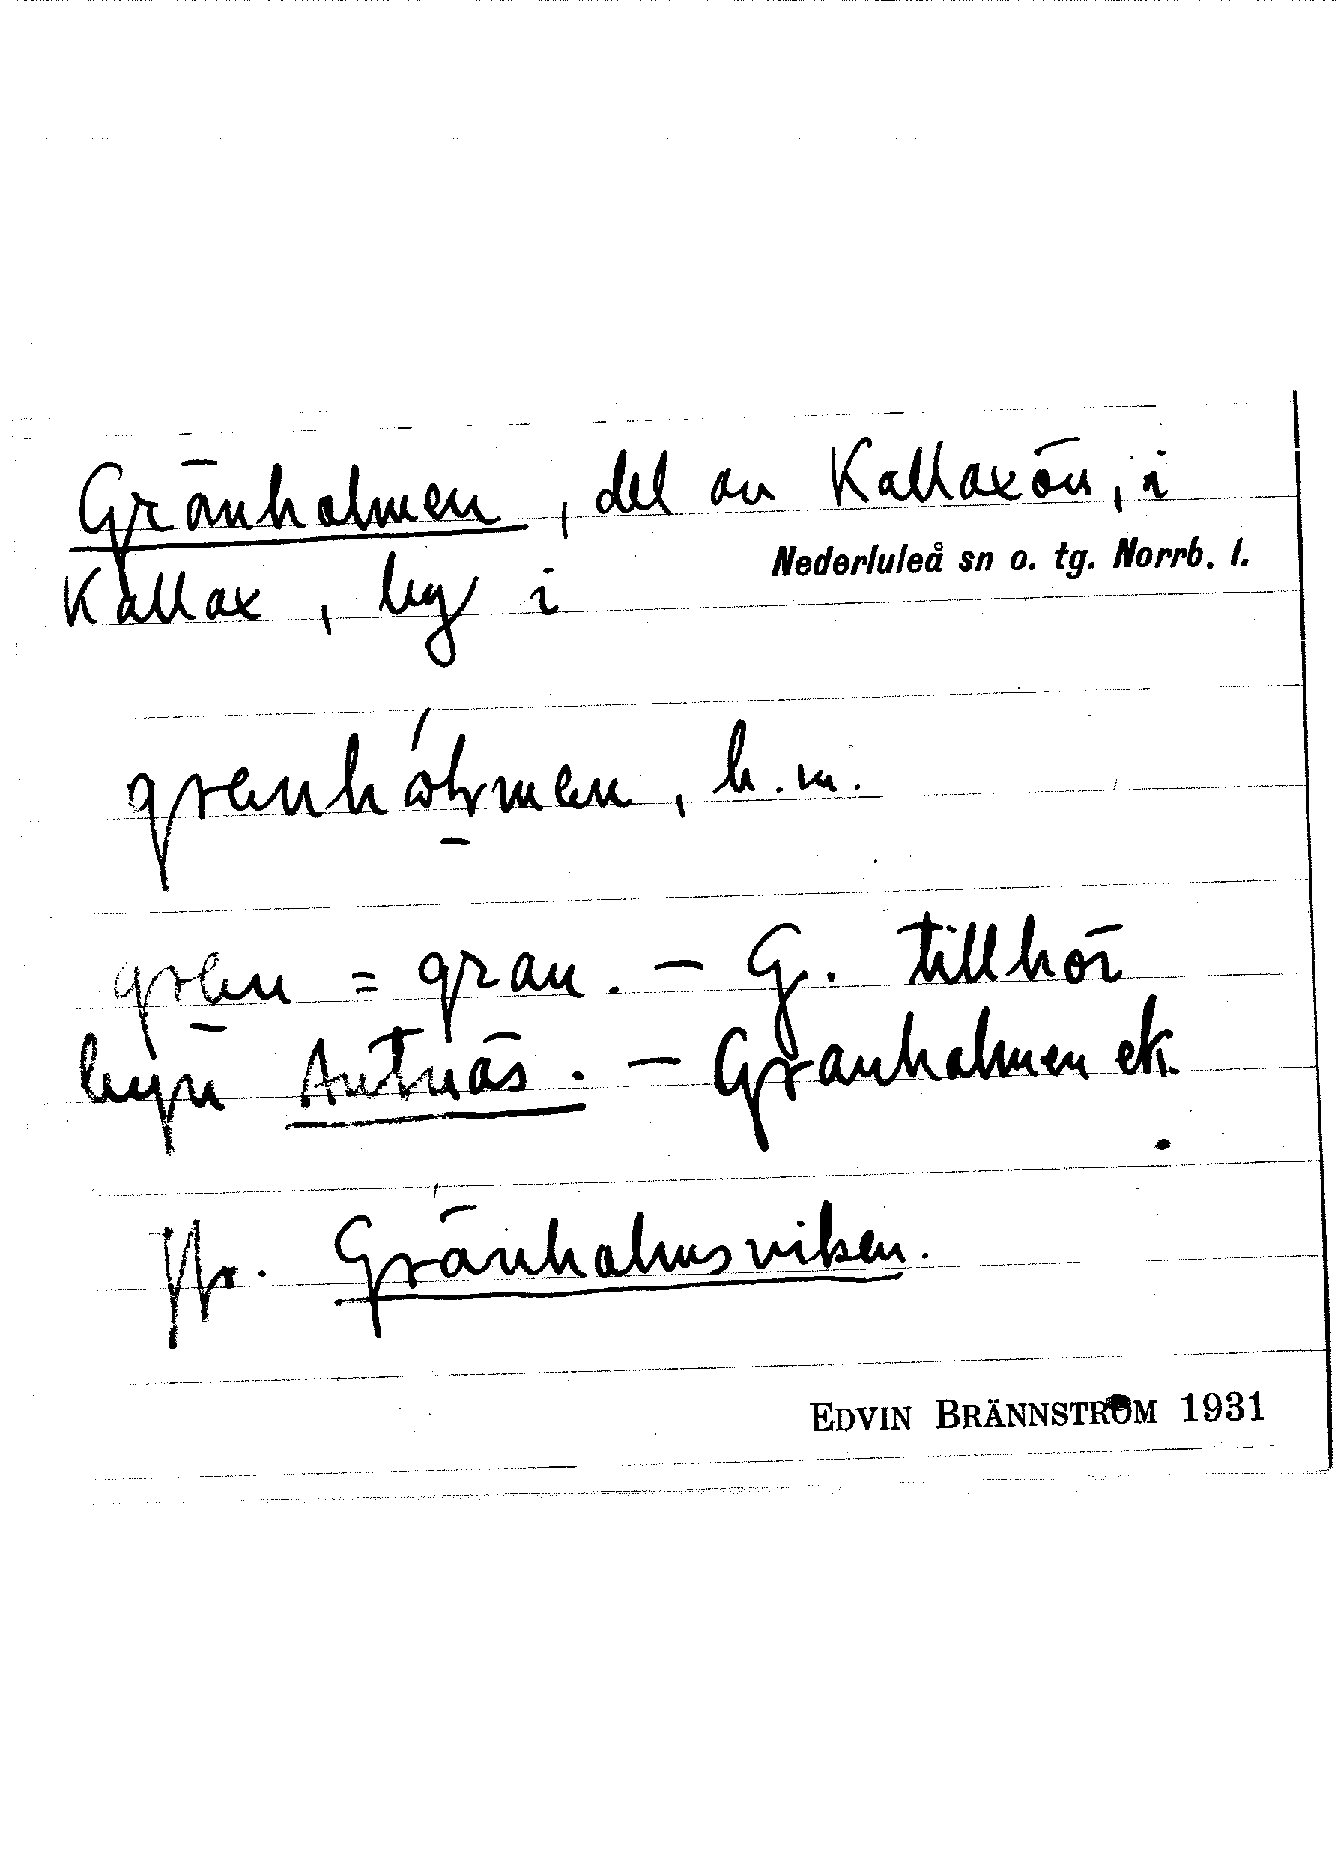 Gränholmen, del av Kallaxön, i
Nederluleå sn o. tg. Norrb. l.
Kallax, by i
h.m.
= gran. — G. tillhör
byn Antnäs. — Granholmen ek.
Jfr. Gränholmsviken.
EDVIN BRÄNNSTRÖM 1931